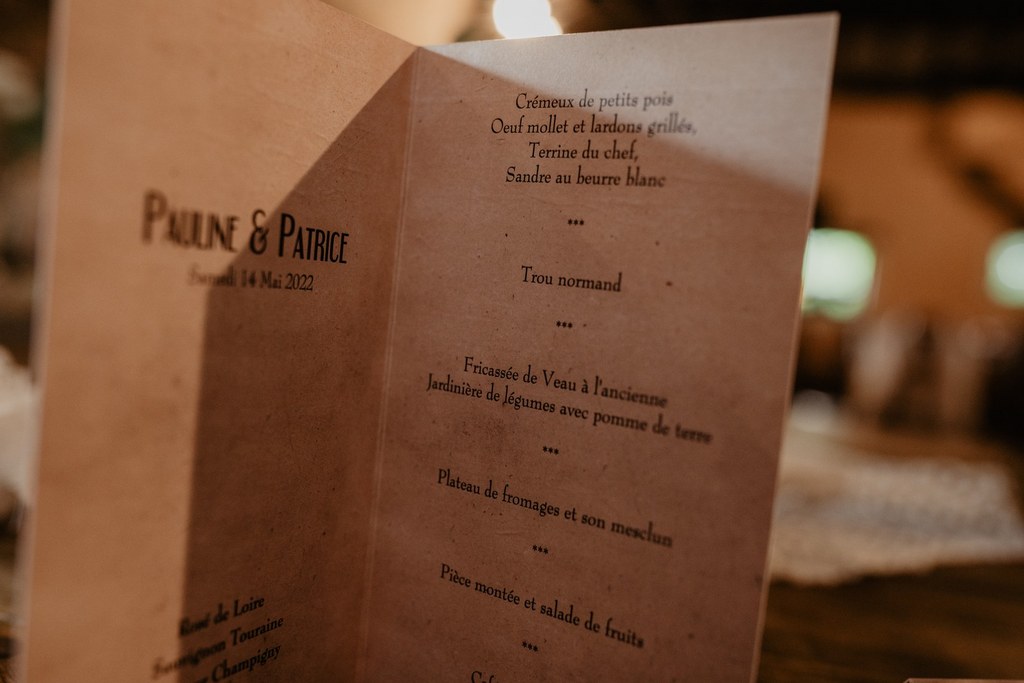 PAULINE & PATRICE
Samedi 14 Mai 2022
Rosé de Loire
Sauvignon Touraine
Champigny
Crémeux de petits pois
Oeuf mollet et lardons grillés,
Terrine du chef,
Sandre au beurre blanc
***
Trou normand
***
Fricassée de Veau à l'ancienne
Jardinière de légumes avec pomme de terre
***
Plateau de fromages et son mesclun
***
Pièce montée et salade de fruits
***